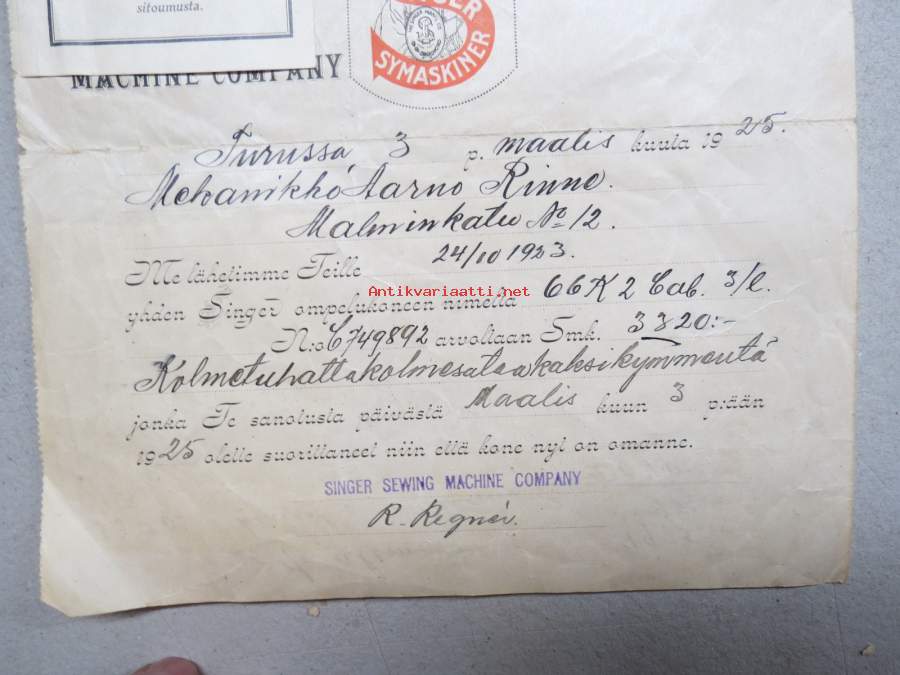 sitoumusta.
SINGER
SYMASKINER
MACHINE COMPANY
Turussa, 3 p. maalis kuuta 1925.
Mekanikkó Aarno Rinne.
Malminkatu No 12.
Me lähetimme Teille 24/10 1923.
Antikvariaatti.net
yhden Singer ompelukoneen nimellä 66K2 Cab. 3/l.
N:o C749892 arvoltaan Smk. 3320:-
Kolmetuhattakolmesataakaksikymmentä
jonka Te sanotusta päivästä Maalis kuun 3 p:ään
1925 olette suorittaneet niin että kone nyt on omanne.
SINGER SEWING MACHINE COMPANY
R. Regnér.